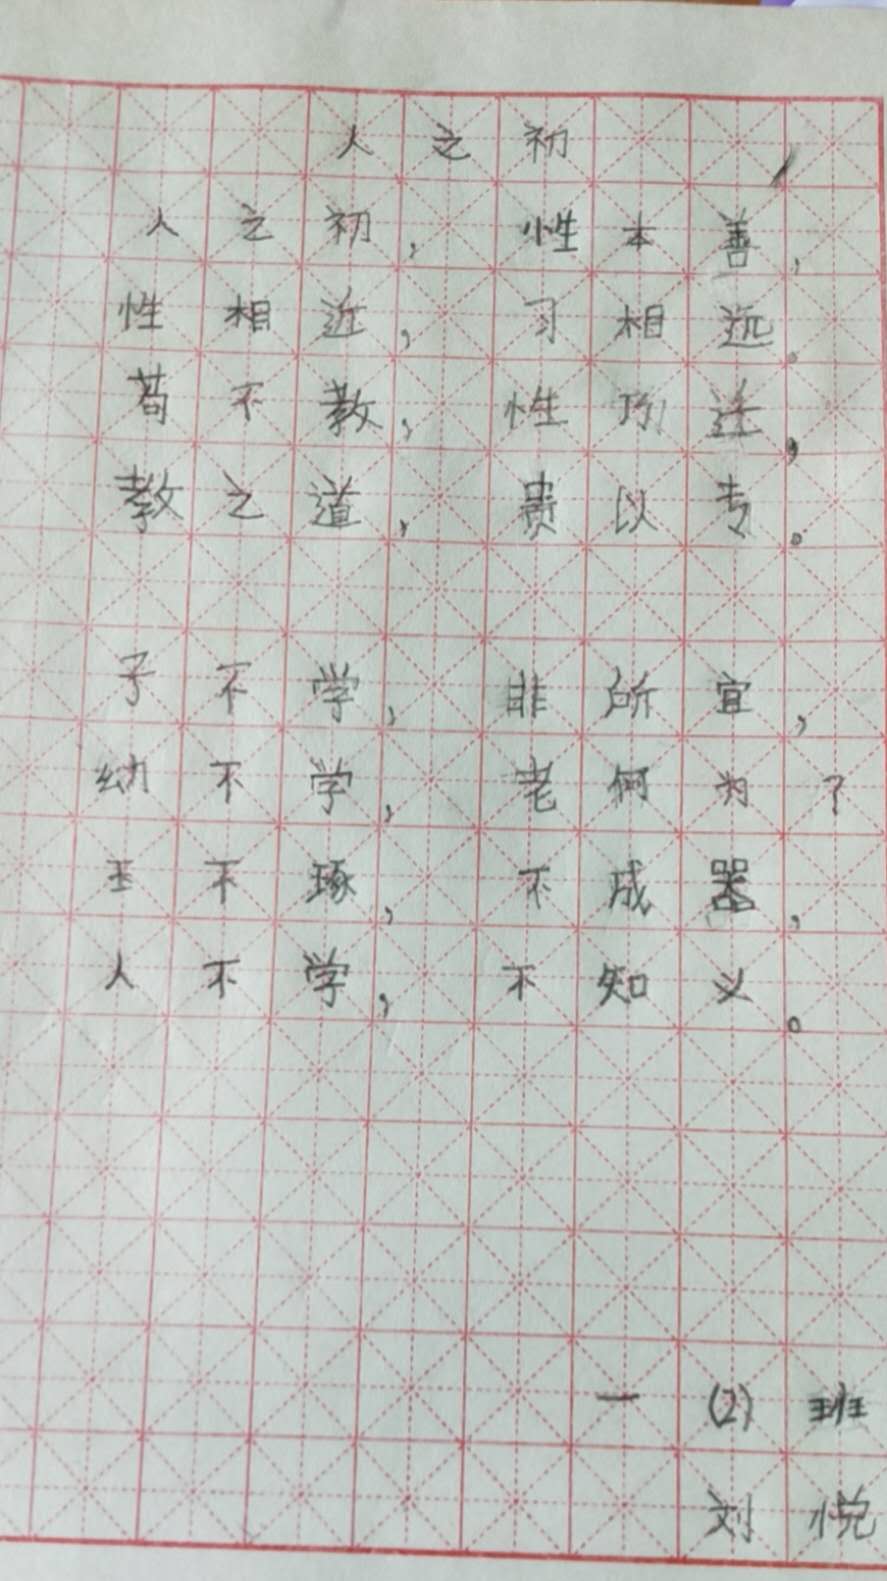 人之初
人之初，性本善，
性相近，习相远。
苟不教，性乃迁，
教之道，贵以专。
子不学，非所宜，
幼不学，老何为？
玉不琢，不成器，
人不学，不知义。
一（2）班
刘悦